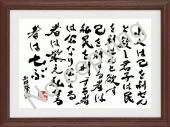 小人は己を利せん
と欲し君子は民
を利せんと欲す
己を利する者は
私民を利する者
は公なり公なる
者は栄え私する
者は亡ぶ